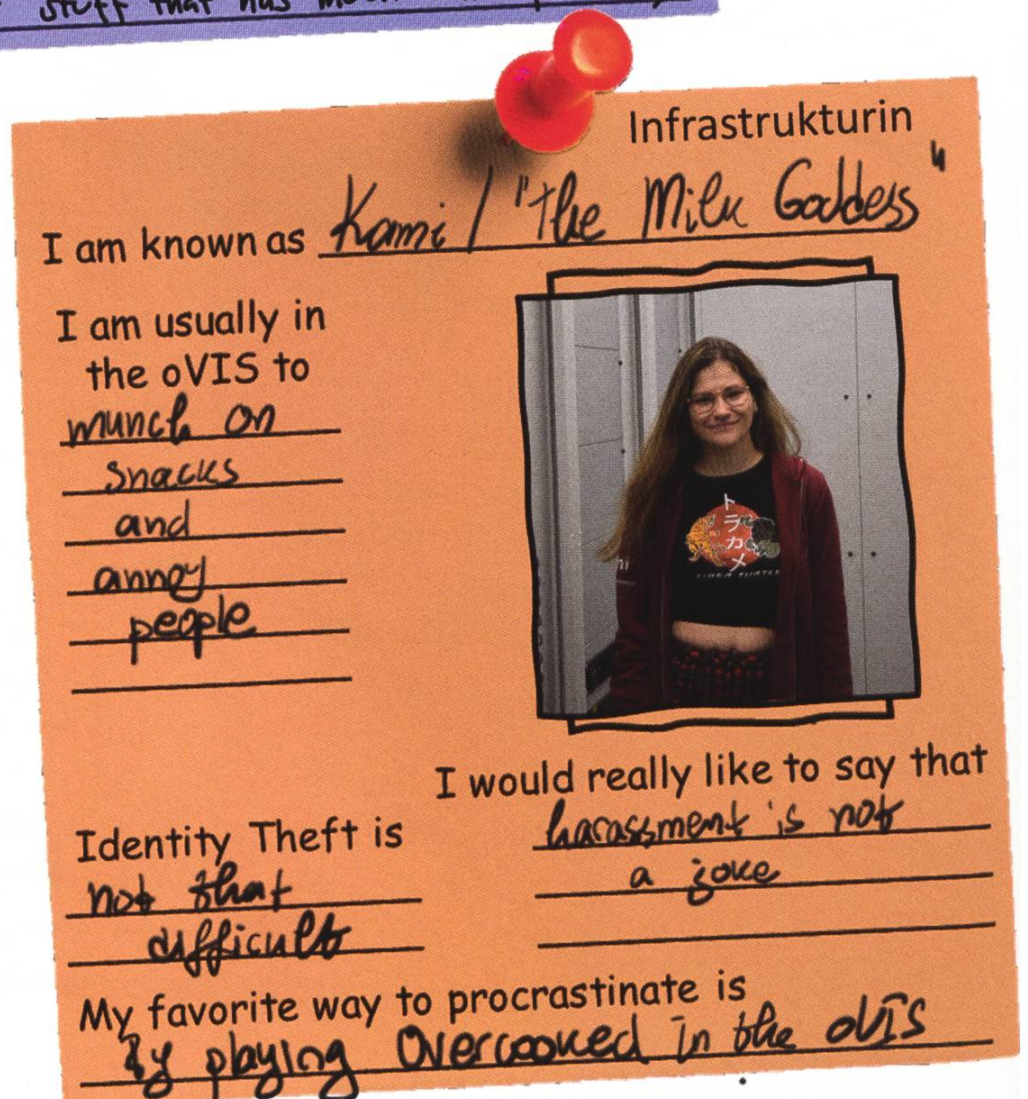 stuff that has
Infrastrukturin
I am known as Kami / "the Milk Goddess"
I am usually in
the oVIS to
munch on
snacks
and
annoy
people
トラカメ
I would really like to say that
harassment is not
a joke
Identity Theft is
not that
difficult
My favorite way to procrastinate is
By playing Overcooked in the oVIS